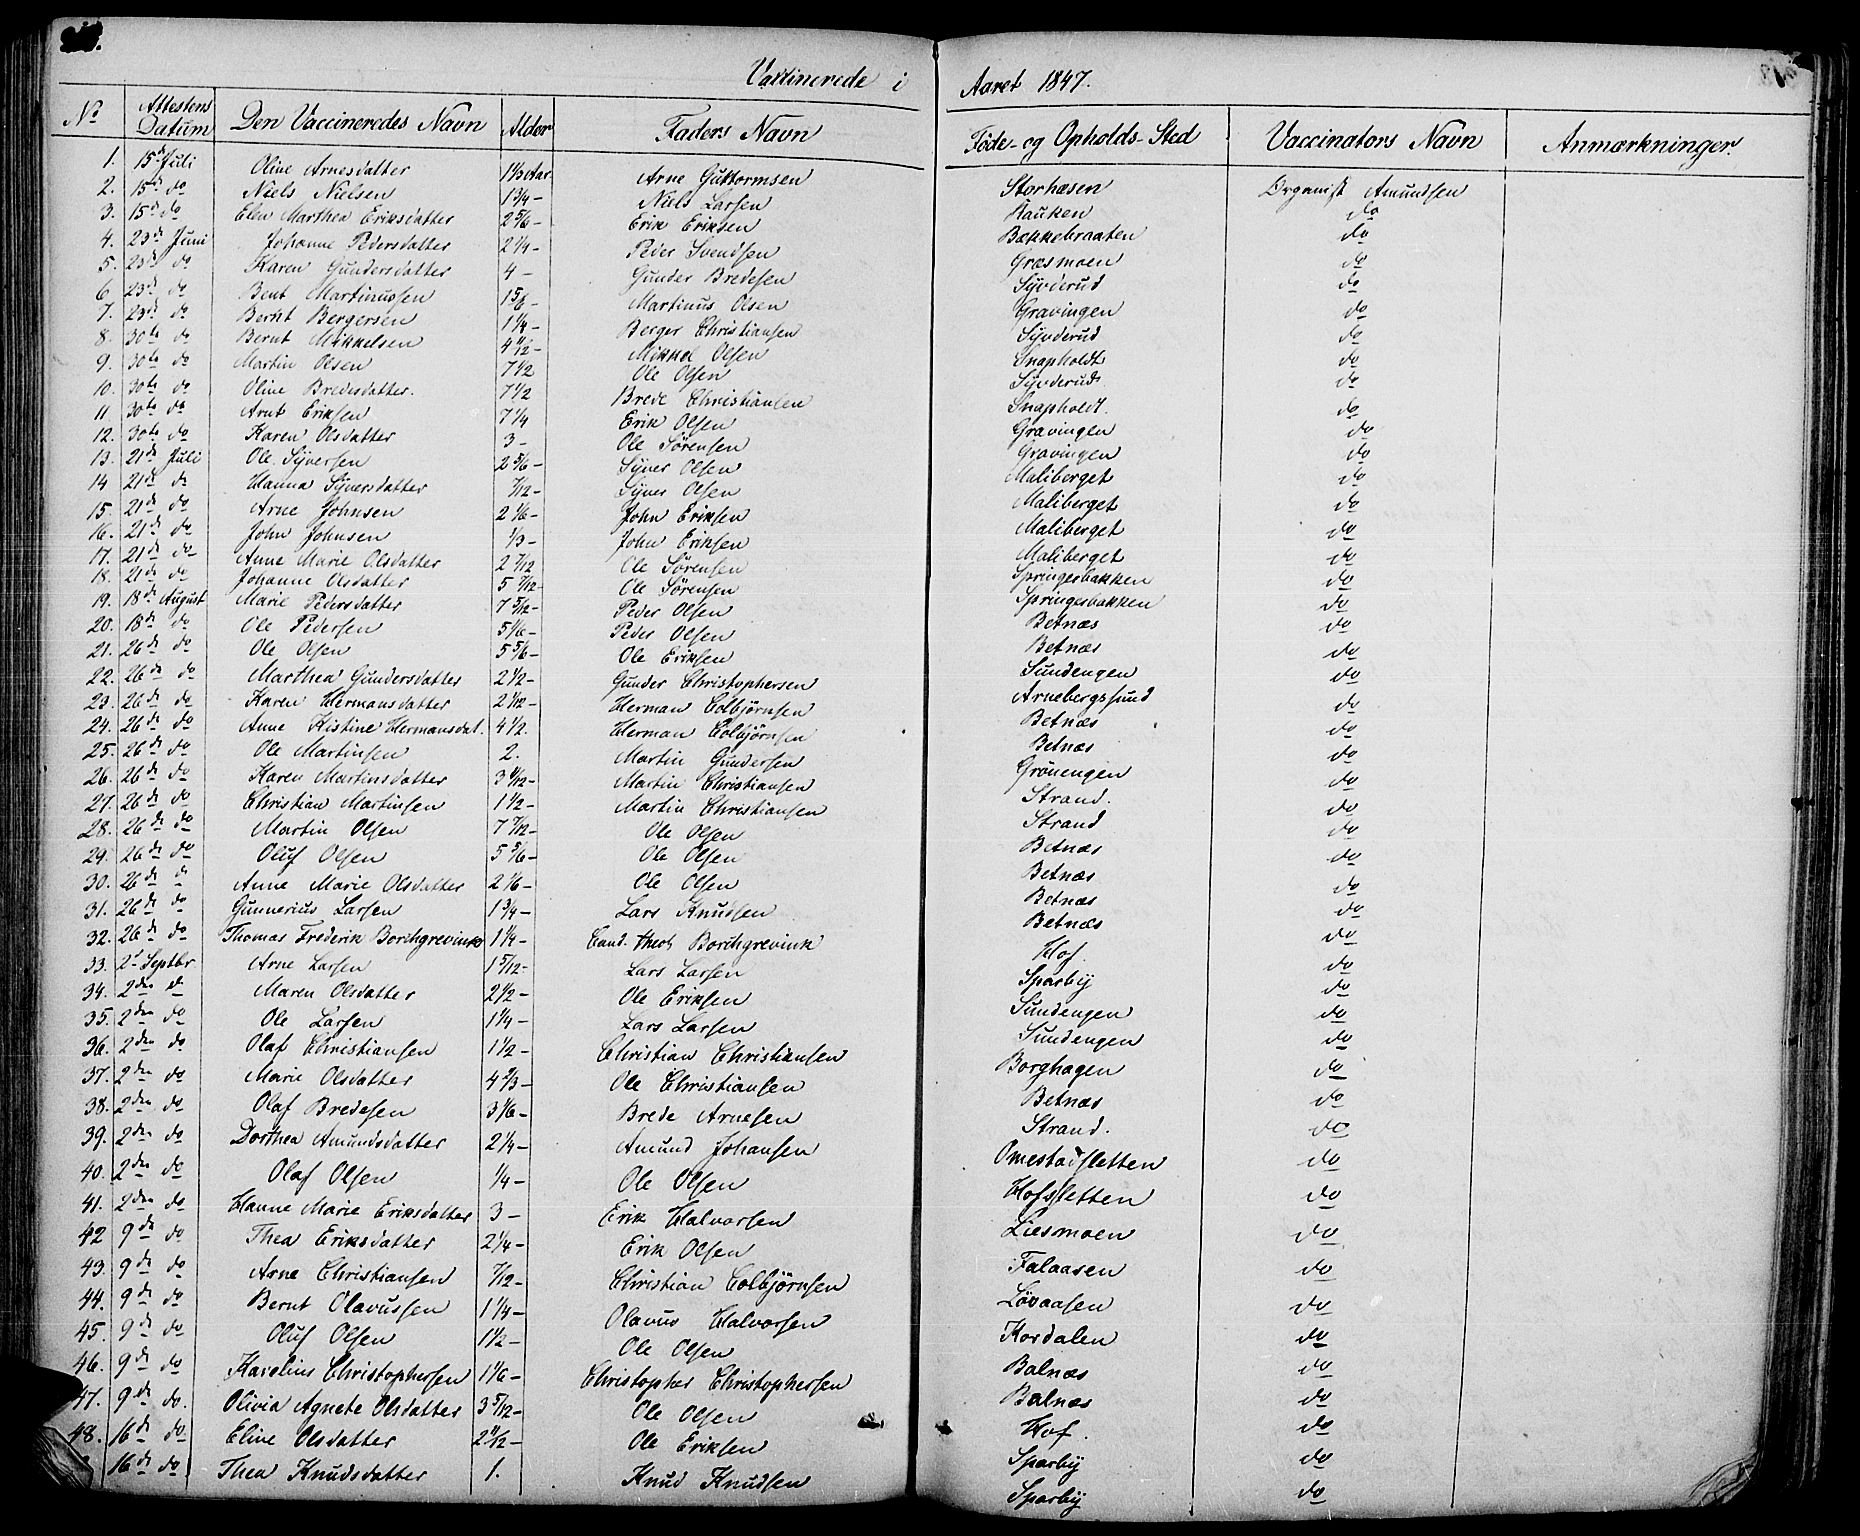 Vaccinerede i Aaret 1847.
No | Attestens Datum | Den Vaccineredes Navn | Alder | Faders Navn | Føde- og Opholds-Sted | Vaccinators Navn | Anmærkninger.
1. 15de Juli Oline Arnesdatter 1 1/3 Aar Arne Guttormsen Storhæsen Organist Amundsen
2. 15de do Niels Nielsen 1 3/4 - Niels Larsen Hauken do
3. 15de do Elen Marthea Eriksdatter 2 5/6 - Erik Eriksen Bækkebraaten do
4. 23de Juni Johanne Pedersdatter 2 1/4 - Peder Svendsen Græsmoen do
5. 23de do Karen Gundersdatter 4 - Gunder Bredesen Syvderud do
6. 23de do Bent Martinussen 1 5/6 - Martinus Olsen Gravingen do
7. 23de do Bernt Bergersen 1 1/4 - Berger Christiansen Syvderud do
8. 30te do Bernt Mikkelsen 4 11/12 - Mikkel Olsen Snapholdt do
9. 30te do Martin Olsen 7 1/2 Ole Olsen Syvderud do
10. 30te do Oline Bredesdatter. 7 1/2 Brede Christiansen Snapholdt. do
11 30te do Arnt Eriksen 7 1/4 Erik Olsen Gravingen do
12. 30te do Karen Olsdatter 3 - Ole Sørensen Gravingen do
13. 21de Juli Ole Syversen 2 5/6 - Syver Olsen Maliberget do
14 21de do Hanna Syversdatter 7/12 - Syver Olsen Maliberget do
15. 21de do Arne Johnsen 2 1/6 - John Eriksen Maliberget do
16. 21de do John Johnsen 1/3 - John Eriksen Maliberget do
17. 21de do Anne Marie Olsdatter 2 7/12 Ole Sørensen Springesbakken do
18. 21de do Johanne Olsdatter 5 7/12 - Ole Sørensen Springesbakken do
19. 18de August Marie Pedersdatter 7 5/12 - Peder Olsen Betnæs do
20. 18de do Ole Pedersen 5 1/6 - Peder Olsen Betnæs do
21. 26de do Ole Olsen 5 5/6 - Ole Eriksen Sundengen do
22. 26de do Marthea Gundersdatter 2 1/2 - Gunder Christophersen Arnebergssund do
23. 26de do Karen Hermansdatter 2 1/12 - Herman Colbjørnsen Betnæs do
24. 26de do Anne Kistine Hermansdat. 4 1/2. Herman Colbjørnsen Betnæs do
25. 26de do Ole Martinsen 2. Martin Gundersen Grönengen do
26. 26de do Karen Martinsdatter 3 11/12 - Martin Christiansen Strand. do
27. 26de do Christian Martinsen 1 1/2 - Martin Christiansen Strand do
28. 26de do Martin Olsen 7 7/12 - Ole Olsen Betnæs do
29. 26de do Oluf Olsen 5 5/6 - Ole Olsen Betnæs do
30. 26de do Anne Marie Olsdatter 2 1/6 - Ole Olsen Betnæs do
31. 26de do Gunnerius Larsen 1 3/4 - Lars Knudsen Betnæs do
32. 26de do Thomas Frederik Borchgrevink 1 1/4 - Cand. theol. Borchgrevink Hof. do
33. 2d Septbr Arne Larsen 1 5/12 - Lars Larsen Sparby do
34. 2den do Maren Olsdatter 2 1/2 - Ole Eriksen Sundengen do
35. 2den do Ole Larsen 1 1/4 - Lars Larsen Sundengen do
36. 2den do Olaf Christiansen 1 1/2 - Christian Christiansen Borghagen do
37. 2den do Marie Olsdatter 4 2/3 - Ole Christiansen Betnæs do
38. 2den do Olaf Bredesen 3 1/6 - Brede Arnesen Strand. do
39. 2den do Dorthea Amundsdatter 2 1/4 - Amund Johansen Omestadsletten do
40. 2den do Olaf Olsen 1/4 - Ole Olsen Hofsletten do
41. 2den do Hanne Marie Eriksdatter 3 - Erik Halvorsen Liesmoen do
42 9de do Thea Eriksdatter 2 1/4 - Erik Olsen Falaasen do
43. 9de do Arne Christiansen 7/12 - Christian Colbjørnsen Løvaasen do
44. 9de do Bernt Olavussen 1 1/4 - Olavus Halvorsen Kordalen do
45. 9de do Oluf Olsen 1 1/2 - Ole Olsen Balnæs do
46. 9de do Karelius Christophersen 1 1/6 - Christopher Christophersen Balnæs do
47. 9de do. Olivia Agnete Olsdatter 3 5/12 - Ole Olsen Hof. do
48. 16de do Eline Olsdatter 2 11/12 - Ole Eriksen Sparby do
16de do Thea Knudsdatter 1. Knud Knudsen Sparby do